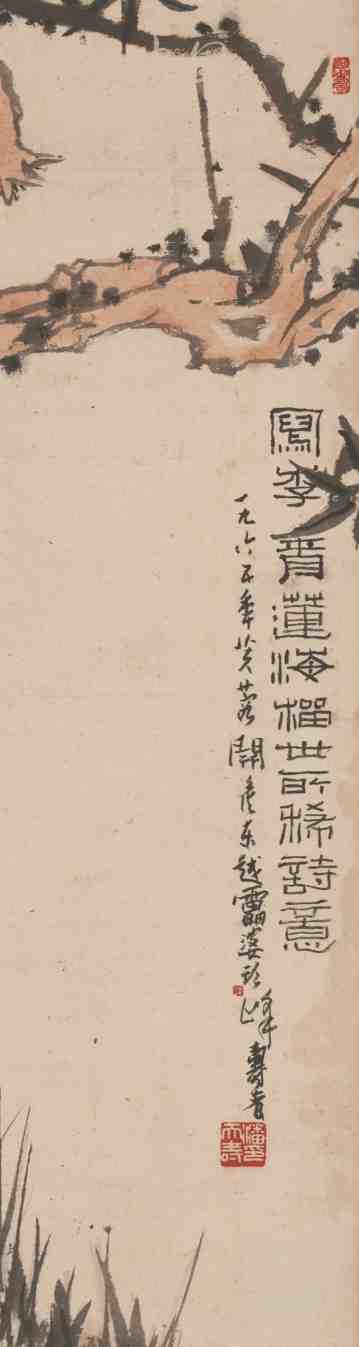 寫李青蓮海榴世所稀詩意
一九六五年芙蓉開候東越靁婆頭峰壽者
潘天壽印